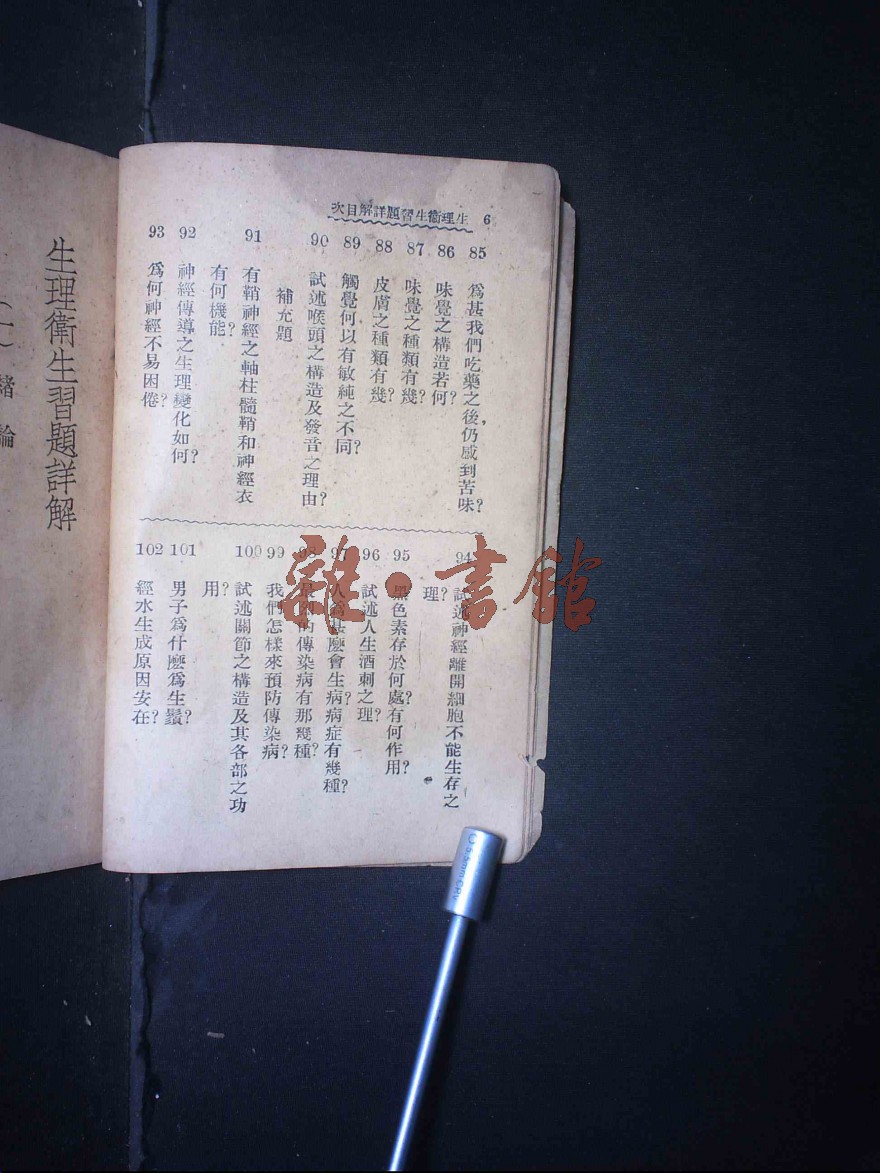 6 生理衛生習題詳解目次
85 爲甚我們吃藥之後仍感到苦味?
86 味覺之構造若何?
87 味覺之種類有幾?
88 皮膚之種類有幾?
89 觸覺何以有敏純之不同?
90 試述喉頭之構造及發音之理由?
補充題
91 有鞘神經之軸柱髓鞘和神經衣
有何機能?
92 神經傳導之生理變化如何?
93 爲何神經不易困倦?
94 試述神經離開細胞不能生存之
理?
95 黑色素存於何處?有何作用?
96 試述人生酒刺之理?
97 人爲甚麼會生病?病症有幾種?
98 的傳染病有那幾種?
99 我們怎樣來預防傳染病?
100 試述關節之構造及其各部之功
用?
101 男子爲什麼爲生鬚?
102 經水生成原因安在?
生理衛生習題詳解
(一) 緒論
雜·書館
5.5mm CRV